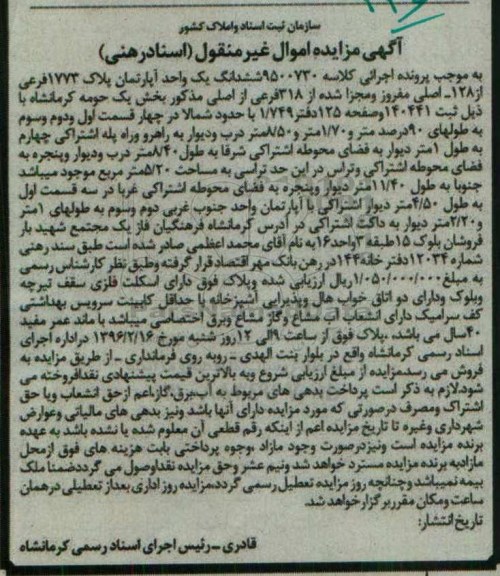 سازمان ثبت اسناد واملاک کشور
آگهی مزایده اموال غیر منقول (اسنادرهنی)
به موجب پرونده اجرائی کلاسه ۹۵۰۰۷۳۰ششدانگ یک واحد آپارتمان پلاک ۱۷۷۳فرعی
از۱۲۸- اصلی مفروز ومجزا شده از ۳۱۸فرعی از اصلی مذکور بخش یک حومه کرمانشاه با
ذیل ثبت ۱۴۰۴۴۱وصفحه ۱۲۵دفتر۱/۷۴۹ با حدود شمالا در چهار قسمت اول ودوم وسوم
به طولهای ۹۰درصد متر و۱/۷۰متر و۸/۵۰متر درب ودیوار به راهرو وراه پله اشتراکی چهارم
به طول ۱متر دیوار به فضای محوطه اشتراکی شرقا به طول۸/۴۰متر درب ودیوار وپنجره به
فضای محوطه اشتراکی وتراس در این حد تراسی به مساحت ۵/۲۰متر مربع موجود میباشد
جنوبا به طول ۱۱/۴۰متر دیوار وپنجره به فضای محوطه اشتراکی غربا در سه قسمت اول
به طول ۴/۵۰متر دیوار اشتراکی با آپارتمان واحد جنوب غربی دوم وسوم به طولهای ۱متر
و۲/۲۰متر دیوار به داکت اشتراکی در آدرس کرمانشاه فرهنگیان فاز یک مجتمع شهید بار
فروشان بلوک ۱۵طبقه ۳واحد۱۶به نام آقای محمد اعظمی صادر شده است طبق سند رهنی
شماره ۱۲۰۳۴دفتر خانه۱۴۴در رهن بانک مهر اقتصاد قرار گرفته وطبق نظر کارشناس رسمی
به مبلغ۱/۰۵۰/۰۰۰/۰۰۰ریال ارزیابی شده وپلاک فوق دارای اسکلت فلزی سقف تیرچه
وبلوک ودارای دو اتاق خواب هال وپذیرایی آشپزخانه با حداقل کابینت سرویس بهداشتی
کف سرامیک دارای انشعاب آب مشاع وگاز مشاع وبرق اختصاصی میباشد با ماند عمر مفید
۴۰سال می باشد ،پلاک فوق از ساعت ۹الی ۱۲روز شنبه مورخ ۱۳۹۶/۲/۱۶ دراداره اجرای
اسناد رسمی کرمانشاه واقع در بلوار بنت الهدی - روبه روی فرمانداری - از طریق مزایده به
فروش می رسدمزایده از مبلغ ارزیابی شروع وبه بالاترین قیمت پیشنهادی نقدافروخته می
شود.لازم به ذکر است پرداخت بدهی های مربوط به آب،برق،گاز،اعم ازحق انشعاب ویا حق
اشتراک ومصرف درصورتی که مورد مزایده دارای آنها باشد ونیز بدهی های مالیاتی وعوارض
شهرداری وغیره تا تاریخ مزایده اعم از اینکه رقم قطعی آن معلوم شده یا نشده باشد به عهده
برنده مزایده است ونیزدرصورت وجود مازاد ،وجوه پرداختی بابت هزینه های فوق ازمحل
مازادبه برنده مزایده مسترد خواهد شد ونیم عشر وحق مزایده نقداوصول می گردد.ضمنا ملک
بیمه نمیباشد وچنانچه روز مزایده تعطیل رسمی گردد،مزایده روز اداری بعداز تعطیلی درهمان
ساعت ومکان مقرر برگزار خواهد شد.
تاریخ انتشار:
قادری - رئیس اجرای اسناد رسمی کرمانشاه